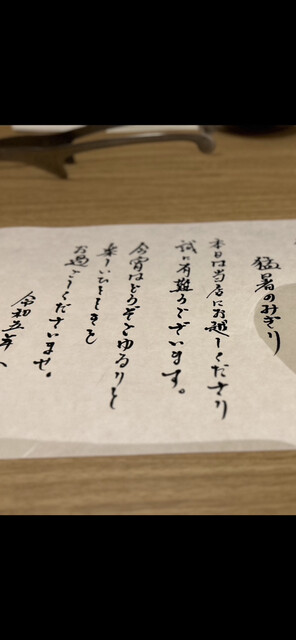 猛暑のみぎり
本日は当店にお越しくださり
誠に有難うございます。
今宵はどうぞごゆるりと
楽しいひとときを
お過ごしくださいませ。
令和五年八